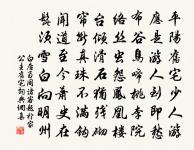 平陽舊宅少人游
應是游人到即愁
布谷鳥啼桃李院
絡絲虫怨鳳凰樓
台傾滑石猶殘砌
簾斷真珠不滿鉤
聞道至今蕭史在
髭須雪白向明州
白居易同諸客題於家
公主舊宅詞典網集